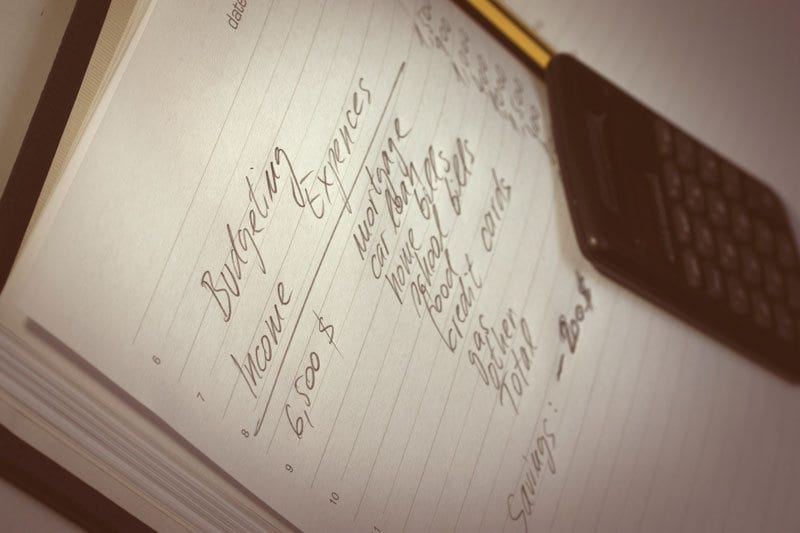 date
Budgeting
6
Income Expences
7
8
6,500 $ mortgage
car loan
9
home bills
school bills
10
food
credit cards
gas
other
Total
Savings: